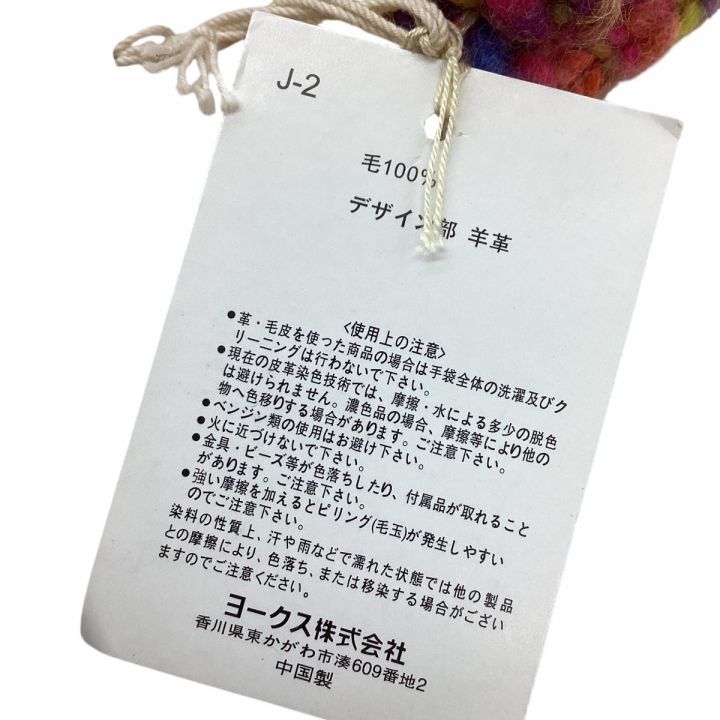 J-2
毛100%
デザイン部 羊革
〈使用上の注意〉
●革・毛皮を使った商品の場合は手袋全体の洗濯及びク
リーニングは行わないで下さい。
●現在の皮革染色技術では、摩擦・水による多少の脱色
は避けられません。濃色品の場合、摩擦等により他の
物へ色移りする場合があります。ご注意下さい。
●ベンジン類の使用はお避け下さい。
●火に近づけないで下さい。
●金具・ビーズ等が色落ちしたり、付属品が取れること
があります。ご注意下さい。
●強い摩擦を加えるとピリング(毛玉)が発生しやすい
のでご注意下さい。
染料の性質上、汗や雨などで濡れた状態では他の製品
との摩擦により、色落ち、または移染する場合がござい
ますのでご注意ください。
ヨークス株式会社
香川県東かがわ市湊609番地2
中国製